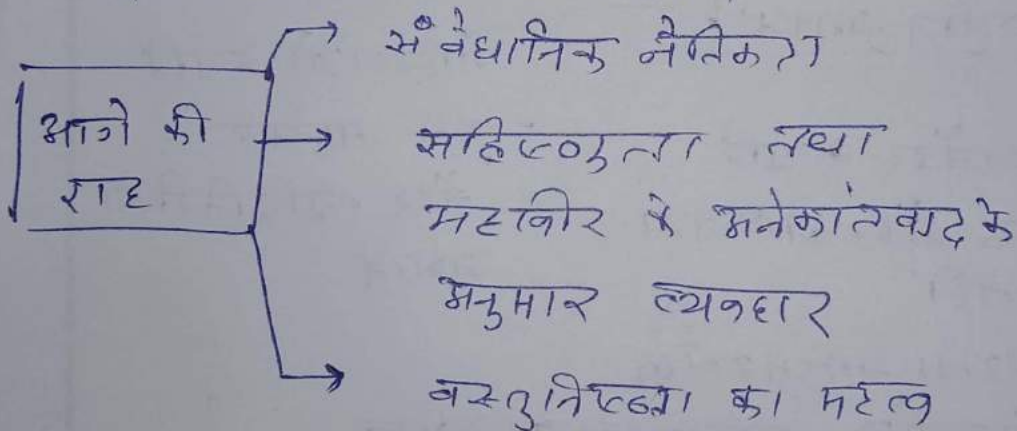 संवैधानिक नैतिकता
आगे की
राह
सहिष्णुता तथा
महावीर के अनेकांतवाद के
अनुसार व्यवहार
वस्तुनिष्ठता का महत्व